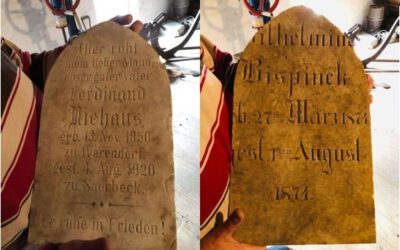 Hier ruht
mein lieber Mann,
unser guter Vater
Ferdinand
Niehaus,
geb. 13. Nov. 1850
zu Warendorf.
gest. 4. Aug. 1920
zu Saerbeck.
Er ruhe in Frieden!
Wilhelmine
Bispinck
27ten März 1874
gest. August
1874.